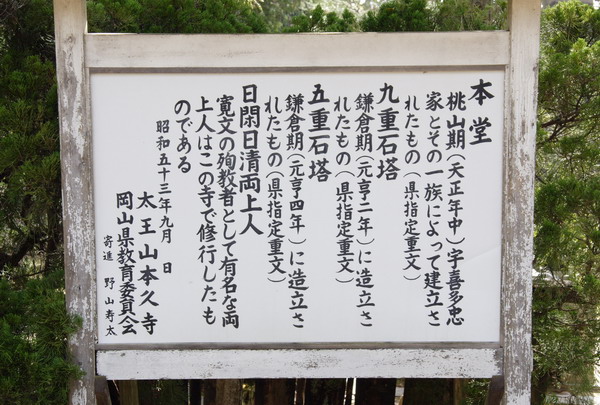 本堂
桃山期（天正年中）宇喜多忠
家とその一族によって建立さ
れたもの（県指定重文）
九重石塔
鎌倉期（元亨二年）に造立さ
れたもの（県指定重文）
五重石塔
鎌倉期（元亨四年）に造立さ
れたもの（県指定重文）
日閑日清両上人
寛文の殉教者として有名な両
上人はこの寺で修行したも
のである
昭和五十三年九月　日
太王山本久寺
岡山県教育委員会
寄進　野山寿太